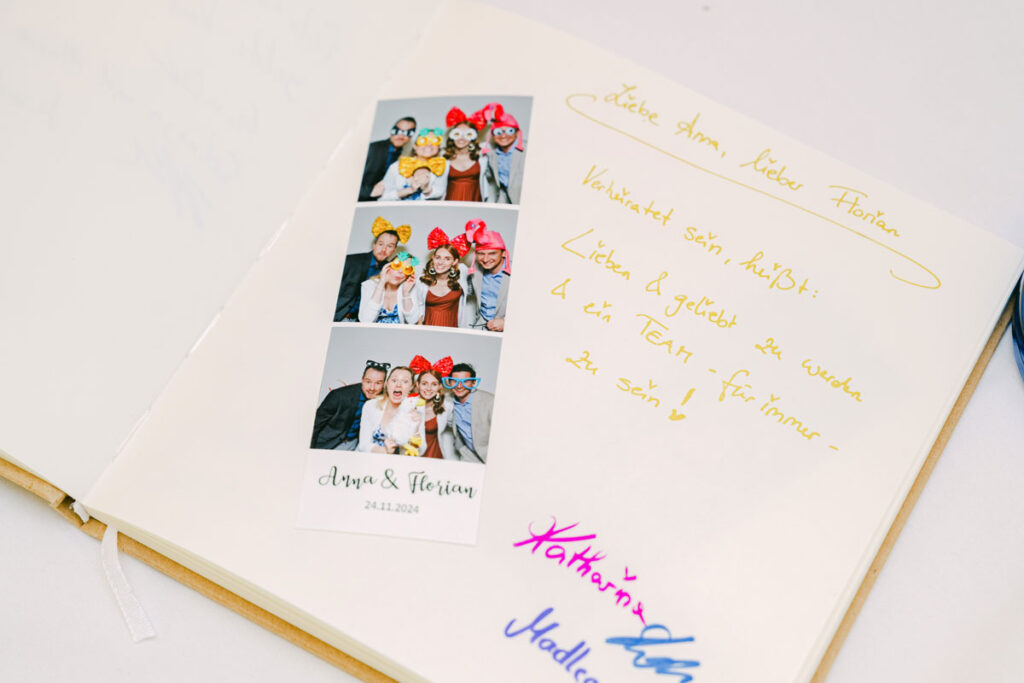 Liebe Anna, lieber Florian
Verheiratet sein, heißt:
Lieben & geliebt zu werden
& ein TEAM - für immer -
zu sein!
Anna & Florian
24.11.2024
Katharina